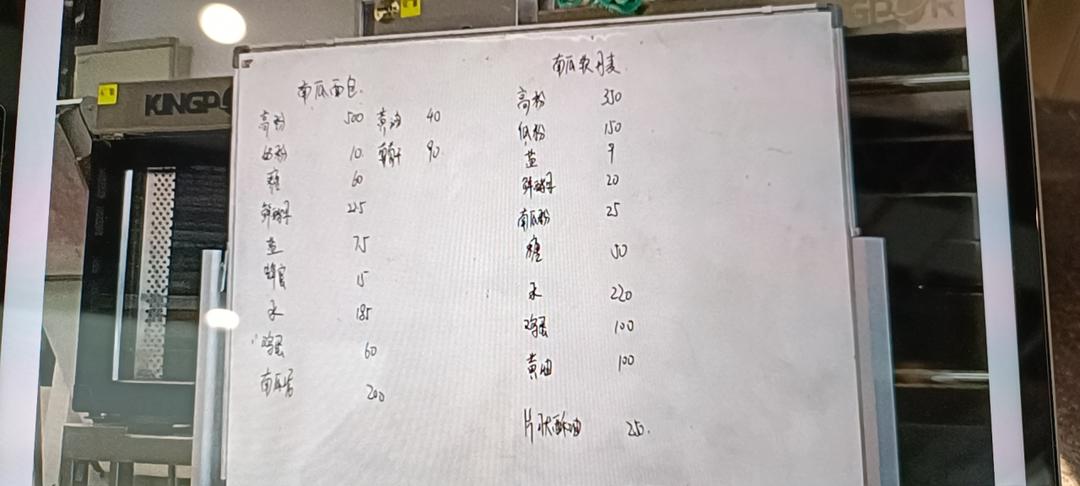 KINGP
南瓜面包
高粉 500 黄油 40
奶粉 10 90
糖 60
鲜酵母
盐 7.5
蜂蜜 15
水 185
鸡蛋 60
南瓜 200
南瓜软丹麦
高粉 350
低粉 150
盐 9
鲜酵母 20
南瓜粉 25
糖 50
水 220
鸡蛋 100
黄油 100
片状酥油 250.